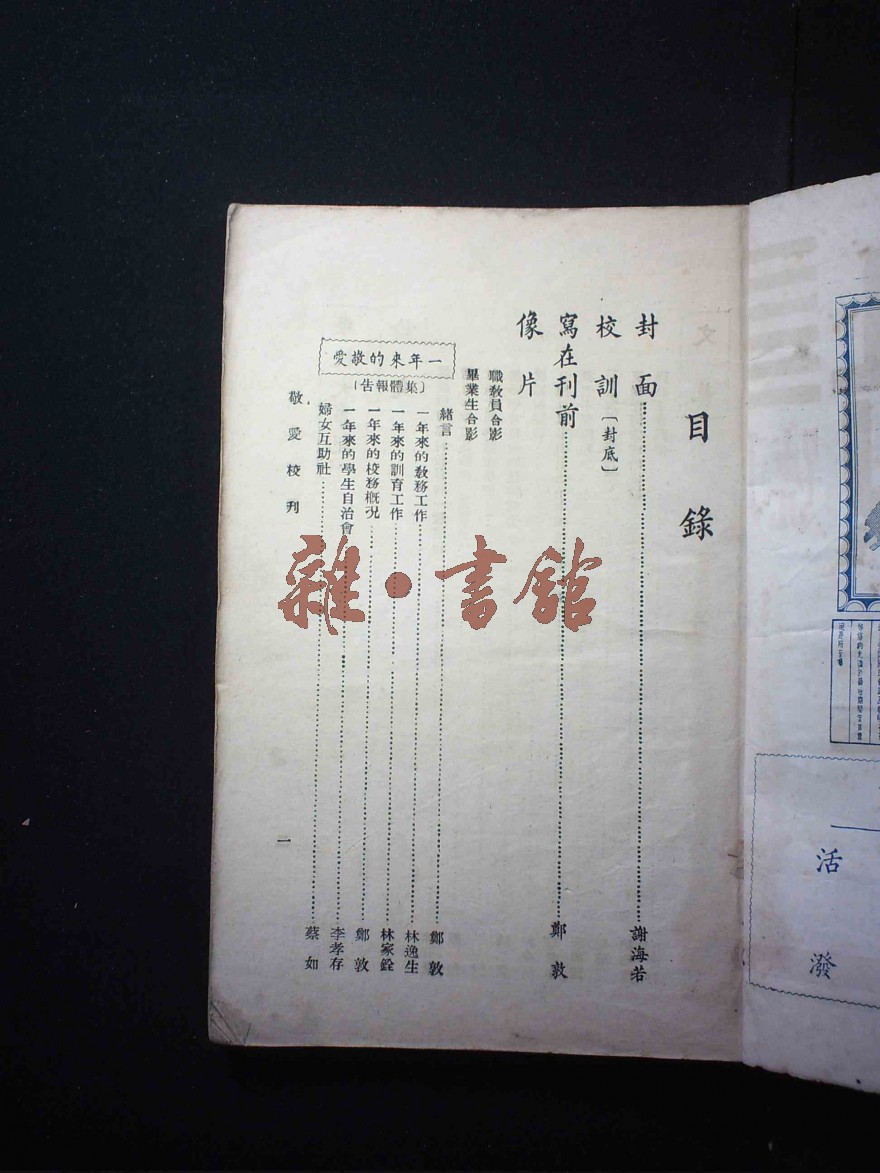 目錄
封面……謝海若
校訓〔封底〕
寫在刊前……鄭敦
像片
職教員合影
畢業生合影
一年來的敬愛
〔集體報告〕
緒言……鄭敦
一年來的教務工作……林逸生
一年來的訓育工作……林家銓
一年來的校務概況……鄭敦
一年來的學生自治會……李孝存
婦女互助社……蔡如
敬愛校刊
一
雜·書館
活
潑